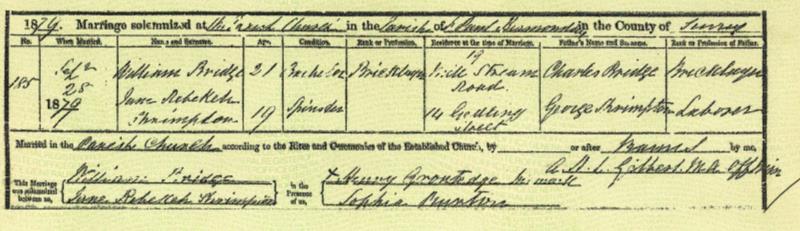 1879. Marriage solemnized at the Parish Church in the Parish of St Paul Bermondsey in the County of Surrey
No. When Married. Name and Surname. Age. Condition. Rank or Profession. Residence at the time of Marriage. Father's Name and Surname. Rank or Profession of Father.
185 Sept 28 1879 William Bridge 21 Bachelor Bricklayer 19 Mill Stream Road. Charles Bridge Bricklayer
Jane Rebekah 19 Spinster 14 Gedling Street George Labourer
Married in the Parish Church according to the Rites and Ceremonies of the Established Church, by or after Banns by me,
A. H. L. Gilbert. MA Off Min
This Marriage was solemnized between us, William Bridge in the Presence of us, X Henry mark
Jane Rebekah Sophia